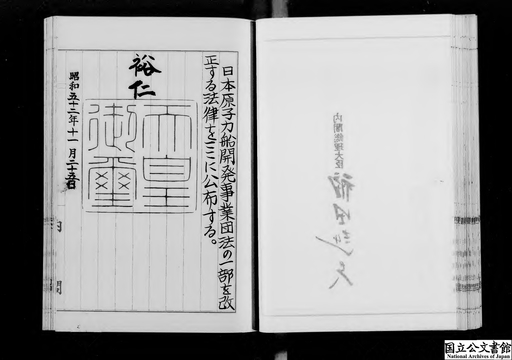 日本原子力船開発事業団法の一部を改
正する法律をここに公布する。
裕仁
天皇
御璽
昭和五十三年十一月二十五日
内閣
内閣総理大臣
福田赳夫
国立公文書館
National Archives of Japan